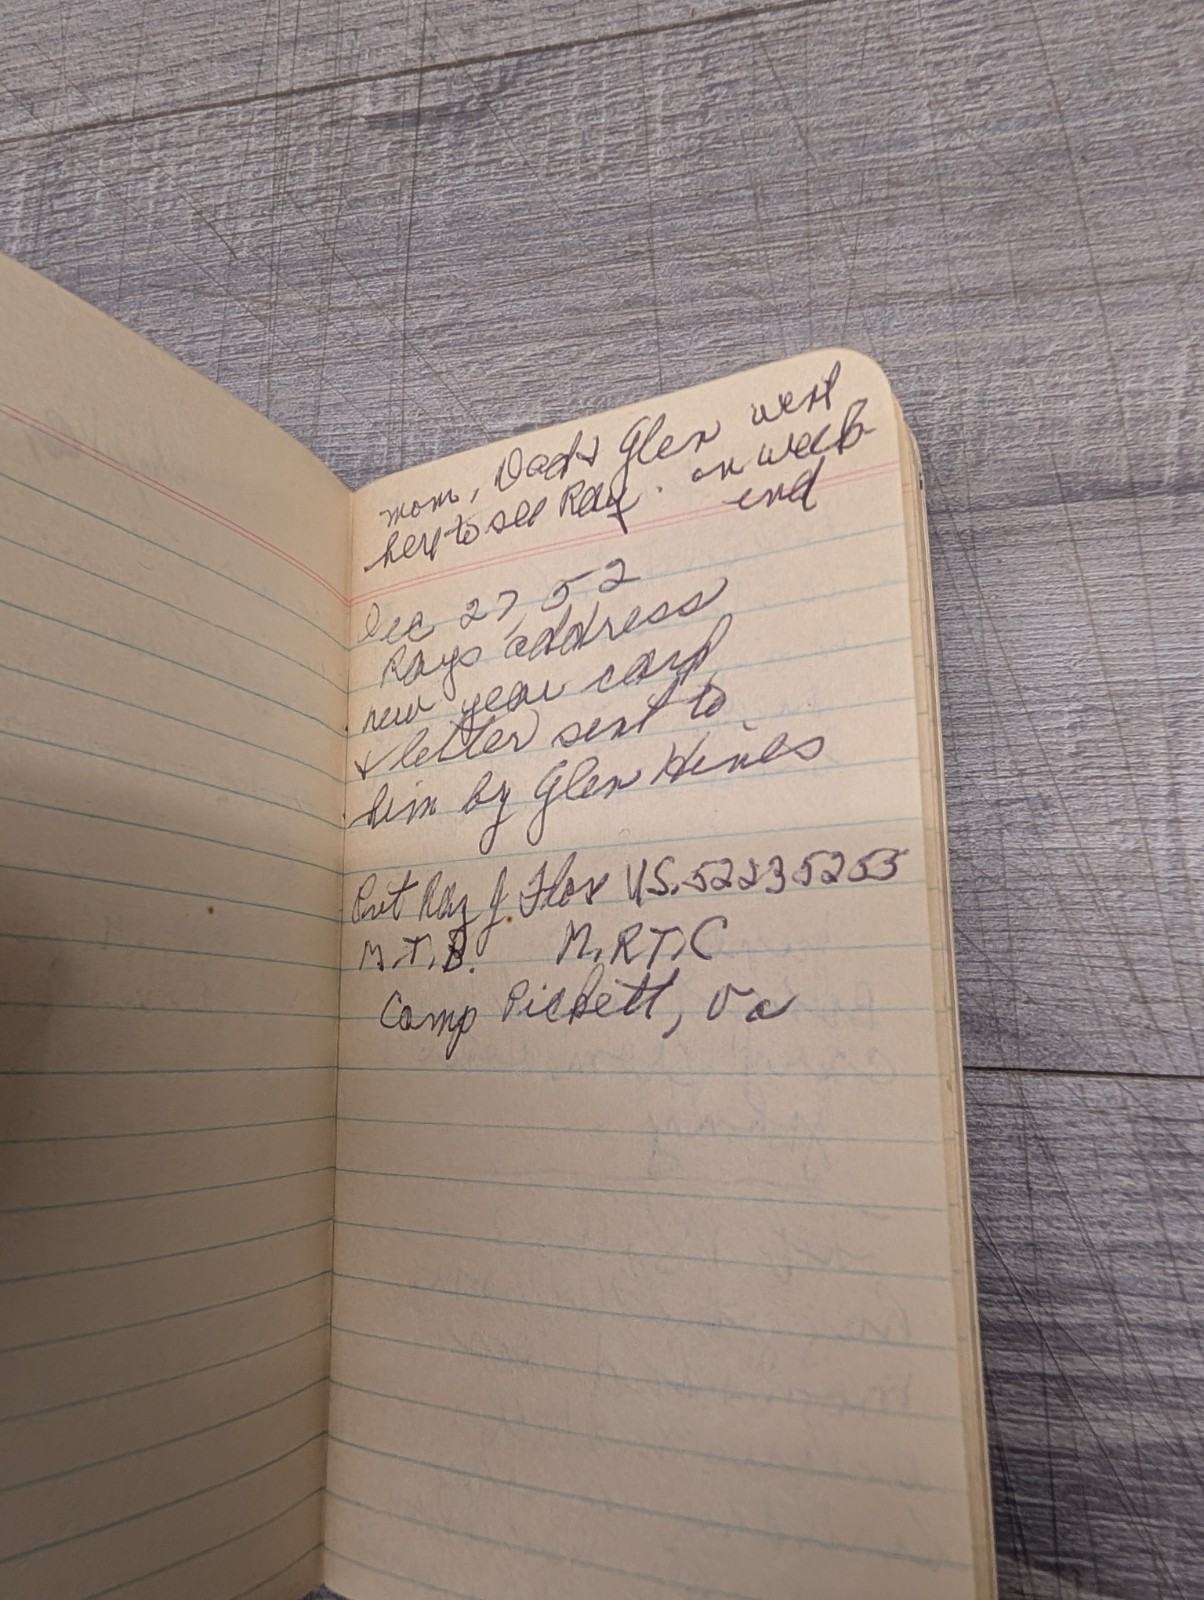 mom, Dad & Glen went
here to see Ray. on week
end
Dec 27, 52
Rays address
new year card
& letter sent to
him by Glen Hines
Pvt Ray J. Flox US. 52235255
M.T.B. M.R.T.C
Camp Pickett, Va